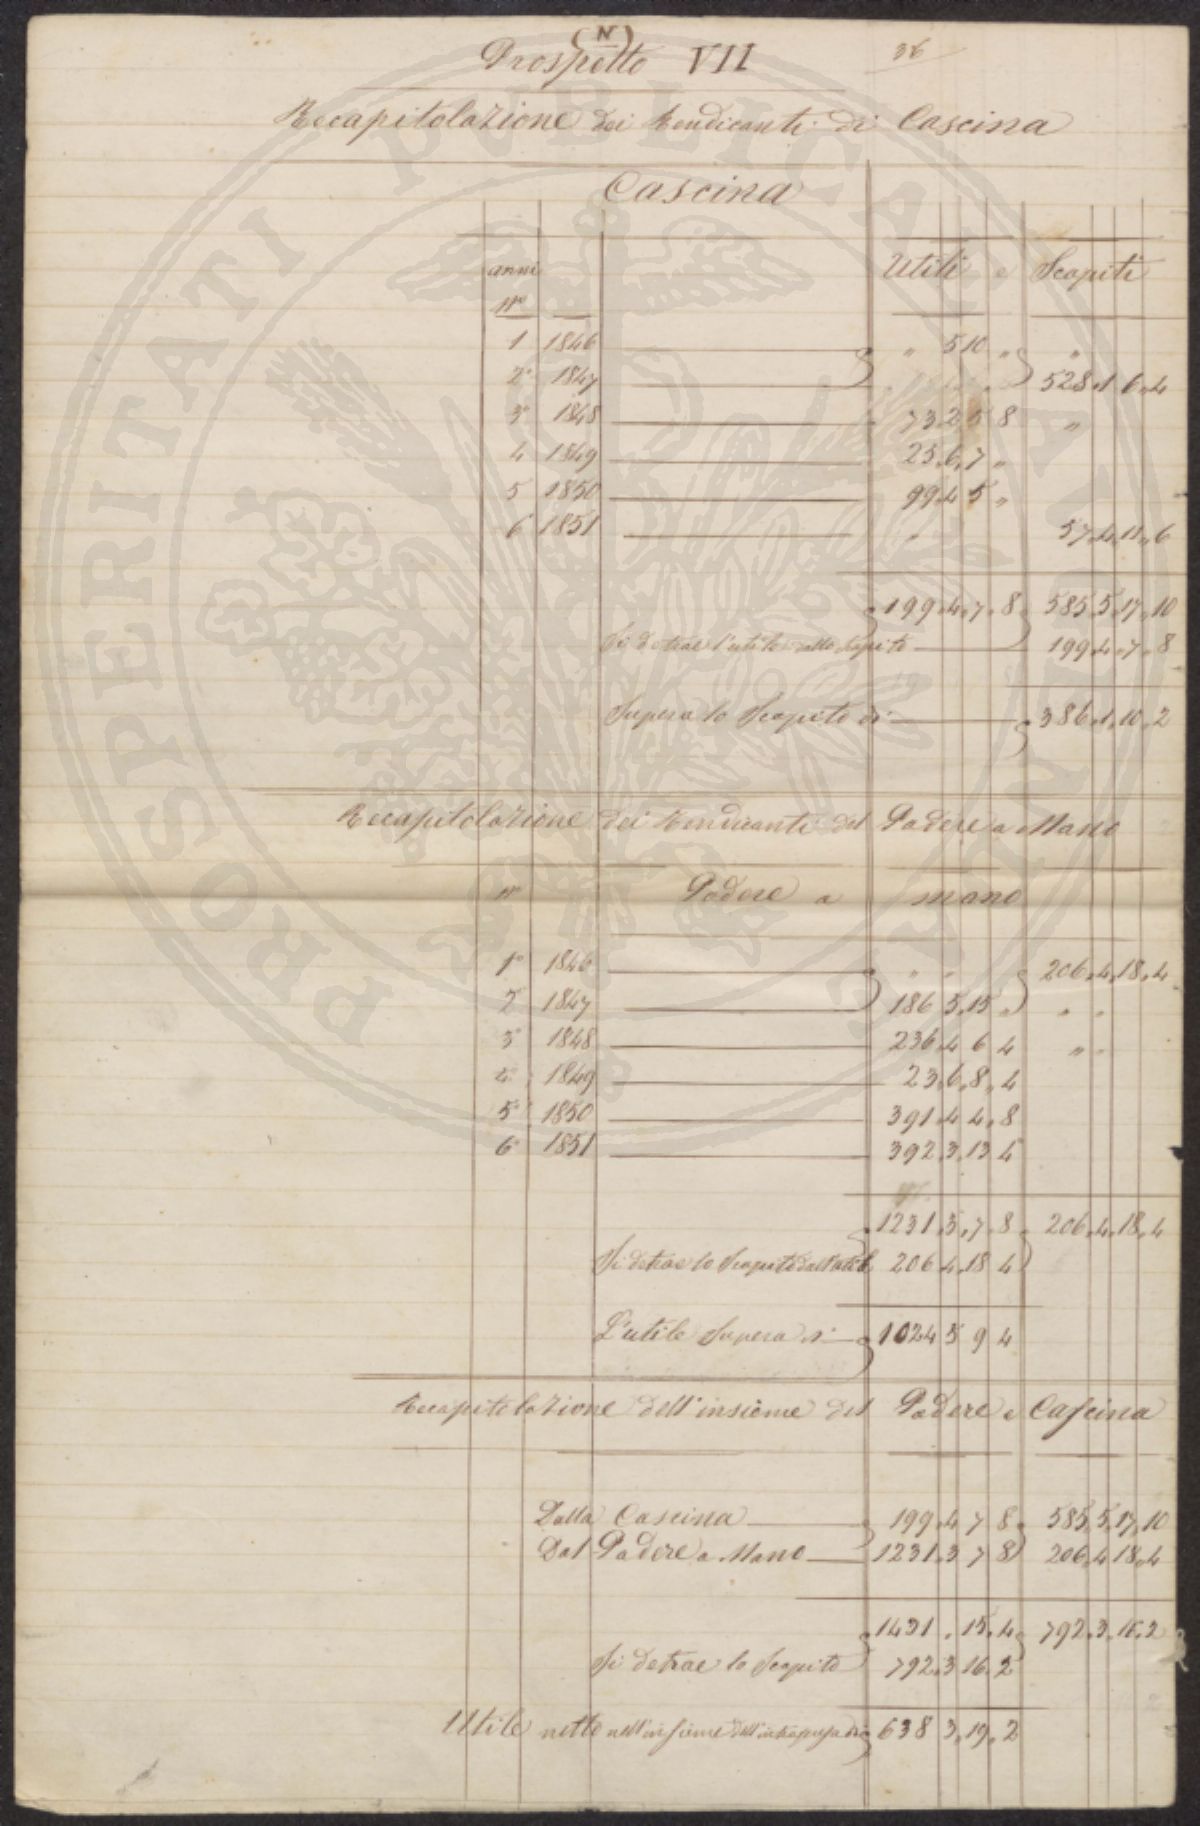 (N)
Prospetto VII 36
Recapitolazione dei Rendiconti di Cascina
Cascina
anni Utili e Scapiti
N°
1 1846 " 510 " "
2° 1847 528.1.6.4
3° 1848 73.2.5.8 "
4 1849 25.6.7 "
5 1850 99.4.5 "
6 1851 " 57.4.11.6
199.4.7.8 585.5.17.10
Si detrae l'utile dallo Scapito 199.4.7.8
Supera lo Scapito di 386.1.10.2
Recapitolazione dei Rendiconti del Podere a Mano
N° Podere a mano
1° 1846 " " 206.4.18.4
2° 1847 186.5.15 " " "
3° 1848 236.4.6.4 " "
4° 1849 23.6.8.4
5° 1850 391.4.4.8
6° 1851 392.3.13.4
1231.3.7.8 206.4.18.4
Si detrae lo Scapito dall'utile 206.4.18.4
L'utile Supera di 1024.5.9.4
Recapitolazione dell'insieme del Podere e Cascina
Dalla Cascina 199.4.7.8 585.5.17.10
Dal Podere a Mano 1231.3.7.8 206.4.18.4
1431 . 15.4 792.3.16.2
Si detrae lo Scapito 792.3.16.2
Utile netto nell'insieme dell'intrapresa di 638.3.19.2
PROSPERITATI PUBLICAE AUGENDAE